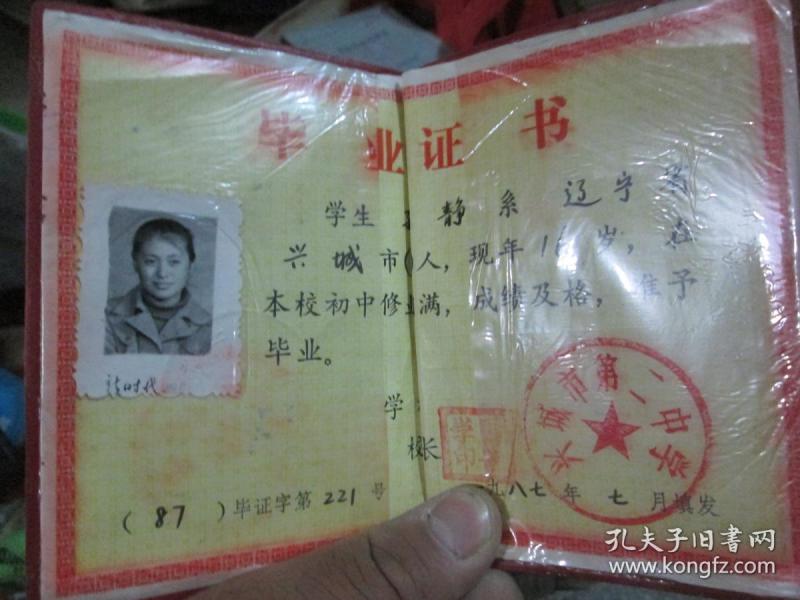 毕业证书
学生 静 系 辽宁省
兴城市人，现年16岁，在
本校初中修业满，成绩及格，准予
毕业。
新时代
学
校长
兴城市第二中学
(87)毕证字第221号
一九八七年七月填发
孔夫子旧书网
www.kongfz.com